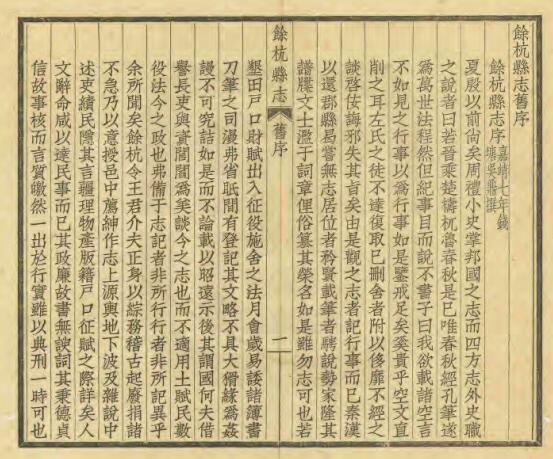 餘杭縣志舊序
餘杭縣志序嘉靖七年鋟
夏殷以前尚矣周禮小史掌邦國之志而四方志外史職
之說者曰若晉乘楚檮杌魯春秋是已唯春秋經孔筆遂
爲萬世法程然但紀事目而說不書子曰我欲載諸空言
不如見之行事以爲行事如是鑒戒足矣奚貴乎空文直
削之耳左氏之徒不達復取已刪舍者附以侈靡不經之
談啓佞誨邪失其旨矣由是觀之志者記行事而已秦漢
以還郡縣曷嘗無志居位者矜賢載筆者騁說勢家隆其
譜牒文士濫于詞章俚俗纂其榮名如是雖勿志可也若
餘杭縣志
舊序
一
墾田戸口財賦出入征役施舍之法月會歲易諉諸簿書
刀筆之司漫弗省眡間有登記其文略不具大猾緣爲姦
謾不可究詰如是而不論載以昭遠示後其謂國何夫借
譽長吏與資閭閻爲矣談今之志也而不適用土賦民數
役法今之政也弗備于志記者非所行行者非所記異乎
余所聞矣餘杭令王君介夫正身以綜務稽古起廢捐諸
不急乃以意授邑中薦紳作志上源輿地下波及雜說中
述吏績民隱其言疆理物產版籍戸口征賦之際詳矣人
文辭命咸以達民事而已其政廉故書無諛詞其秉德貞
信故事核而言質皦然一出於行實雖以典刑一時可也